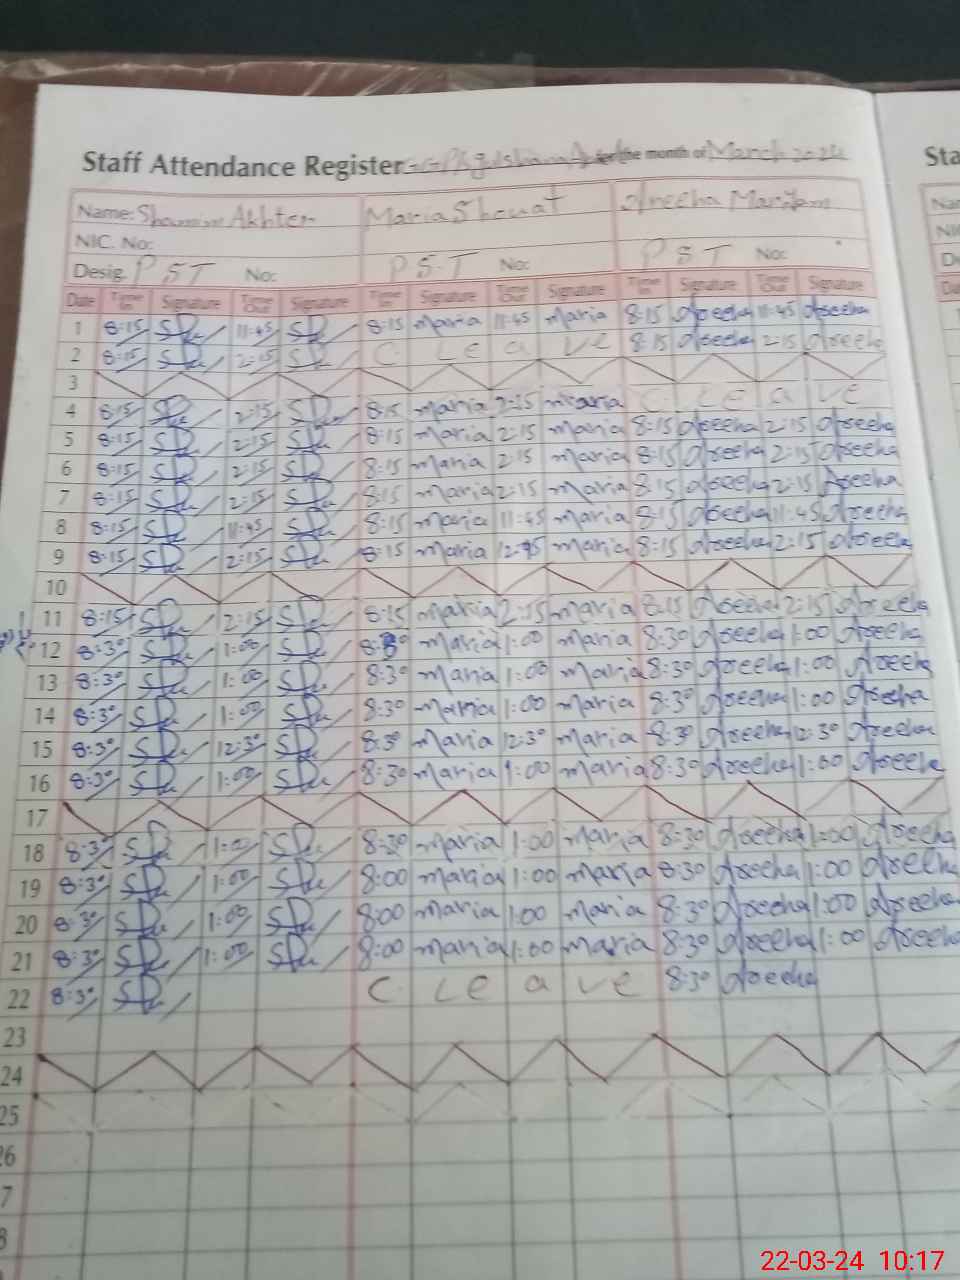 Staff Attendance Register for the month of March 2024
Sta
Name: Shamim Akhter Maria Shouat Areeha Mariam
NIC. No:
Desig. PST No: PST No: PST No:
Date Time In Signature Time Out Signature Time In Signature Time Out Signature Time In Signature Time Out Signature
1 8:15 11:45 8:15 maria 11:45 maria 8:15 Areeha 11:45 Areeha
2 8:15 2:15 C. Leave 8:15 Areeha 2:15 Areeha
3
4 8:15 2:15 8:15 maria 2:15 maria C. Leave
5 8:15 2:15 8:15 maria 2:15 maria 8:15 Areeha 2:15 Areeha
6 8:15 2:15 8:15 maria 2:15 maria 8:15 Areeha 2:15 Areeha
7 8:15 2:15 8:15 maria 2:15 maria 8:15 Areeha 2:15 Areeha
8 8:15 11:45 8:15 maria 11:45 maria 8:15 Areeha 11:45 Areeha
9 8:15 2:15 8:15 maria maria 8:15 Areeha 2:15 Areeha
10
11 8:15 2:15 8:15 maria 2:15 maria 8:15 Areeha 2:15 Areeha
12 8:30 1:00 8:30 maria 1:00 maria 8:30 Areeha 1:00 Areeha
13 8:30 1:00 8:30 maria 1:00 maria 8:30 Areeha 1:00 Areeha
14 8:30 1:00 8:30 maria 1:00 maria 8:30 Areeha 1:00 Areeha
15 8:30 12:30 8:30 maria 12:30 maria 8:30 Areeha 12:30 Areeha
16 8:30 1:00 8:30 maria 1:00 maria 8:30 Areeha 1:00 Areeha
17
18 8:30 1:00 8:30 maria 1:00 maria 8:30 Areeha 1:00 Areeha
19 8:30 1:00 8:00 maria 1:00 maria 8:30 Areeha 1:00 Areeha
20 8:30 1:00 8:00 maria 1:00 maria 8:30 Areeha 1:00 Areeha
21 8:30 1:00 8:00 maria 1:00 maria 8:30 Areeha 1:00 Areeha
22 8:30 C. Leave 8:30 Areeha
23
24
25
26
7
8
22-03-24 10:17